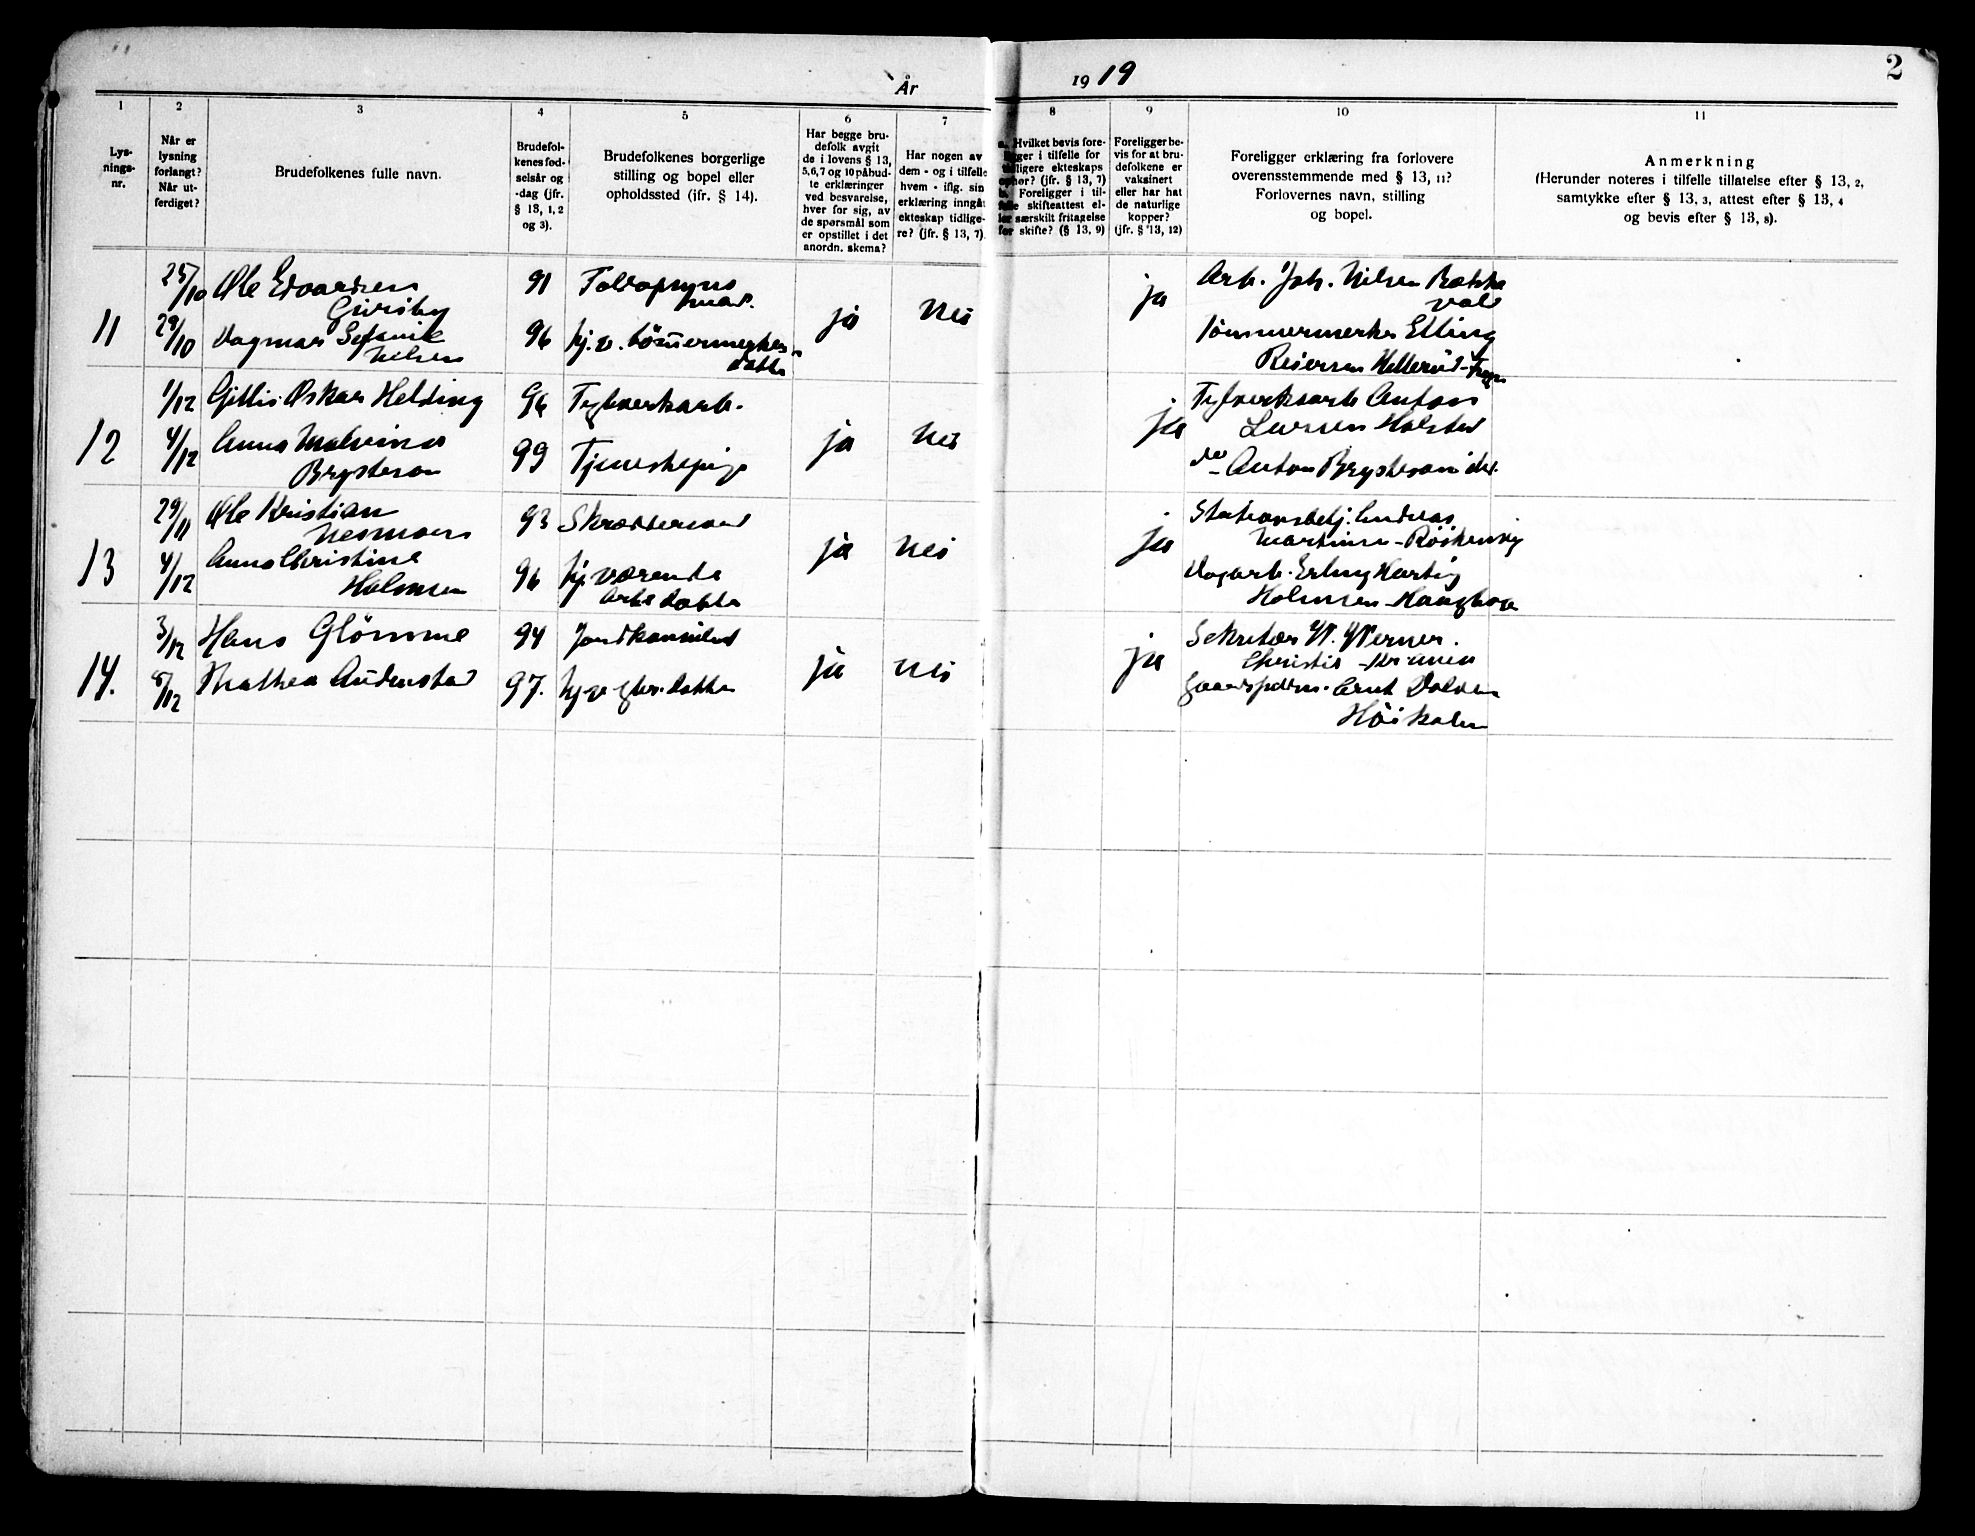 År 1919
2
1 2 3 4 5 6 7 8 9 10 11
Lys-
nings-
nr.
Når er
lysning
forlangt?
Når ut-
ferdiget?
Brudefolkenes fulle navn.
Brudefol-
kenes fød-
selsår og
-dag (jfr.
§ 13, 1,2
og 3).
Brudefolkenes borgerlige
stilling og bopel eller
opholdssted (jfr. § 14).
Har begge bru-
defolk avgit
de i lovens § 13,
5,6,7 og 10 påbud-
te erklæringer
ved besvarelse,
hver for sig, av
de spørsmål som
er opstillet i det
anordn. skema?
Har nogen av
dem - og i tilfelle
hvem - iflg. sin
erklæring inngåt
ekteskap tidlige-
re? (jfr. § 13, 7).
a. Hvilket bevis fore-
ligger i tilfelle for
tidligere ekteskaps
ophør? (jfr. § 13, 7)
b. Foreligger i til-
felle skifteattest el-
ler særskilt fritagelse
for skifte? (§ 13, 9)
Foreligger be-
vis for at bru-
defolkene er
vaksinert
eller har hat
de naturlige
kopper?
(jfr. § 13, 12)
Foreligger erklæring fra forlovere
overensstemmende med § 13, 11?
Forlovernes navn, stilling
og bopel.
Anmerkning
(Herunder noteres i tilfelle tillatelse efter § 13, 2,
samtykke efter § 13, 3, attest efter § 13, 4
og bevis efter § 13, 8).
11
25/10 Ole Edvardsen
91 Toldopsyns
mand.
29/10 Dagmar
Nilsen
96 hj. v. tömmermerkers
datter
ja nei ja
Arb. Joh. Nilsen Bakke
vold
Tömmermerker Elling
Reiersen Hellerud
12
1/12 Gillis Oskar Helding 96 Teglverkarb.
4/12 Anna Malvina
Brysteson
99 Tjenestepige
ja nei ja
Teglverksarb Anton
Larsen Holstad
do Anton Brysteson ibd.
13
29/11 Ole Kristian
Nesmoen
93 Skræddersvend
4/12 Anna Christine
Holmsen
96 hj. værende
arb datter
ja nei ja
Stationsbetj. Andreas
Martinsen - Röikenvig
Dagarb. Erling Hartvig
Holmsen - Haughaga
14.
3/12 Hans Glömme 94 Jordkonsulent
5/12 Mathea Audenstad 97. hj v gbr. datter
ja nei ja
Sekretær W. Werner.
Christia
Gaardsbestr. Arnt Dolven
Höikolen